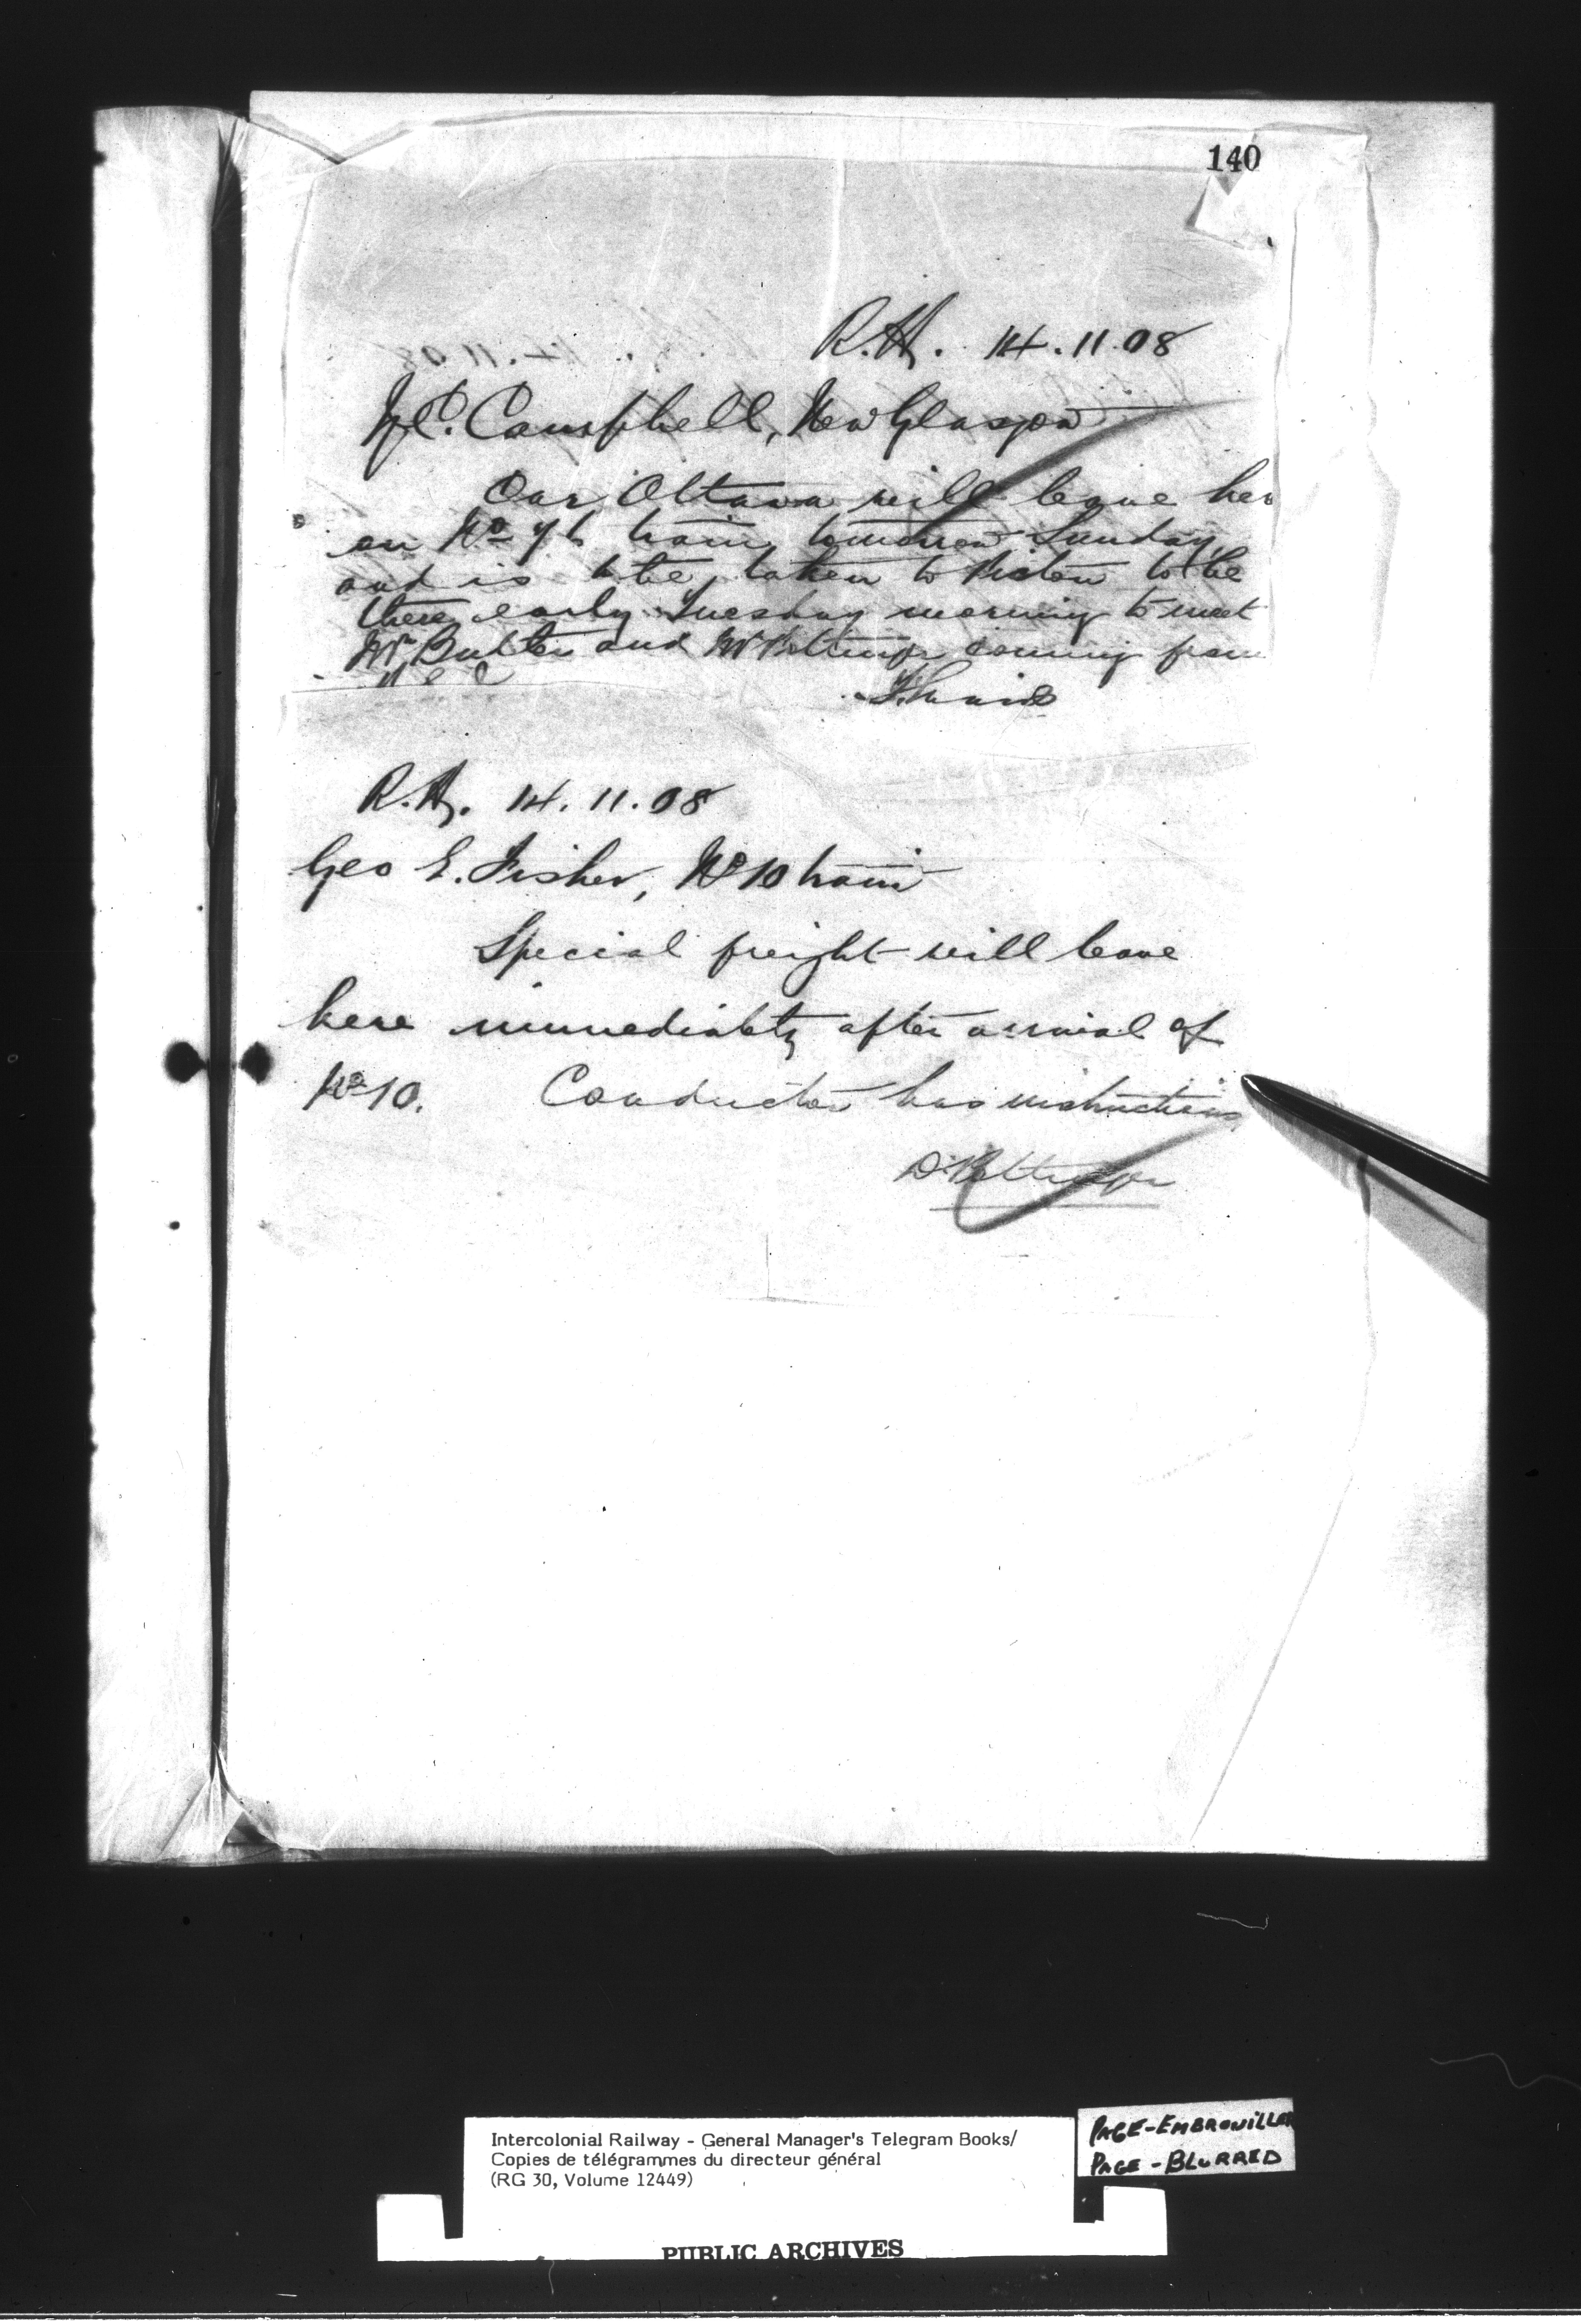 140
R.H. 14.11.08
Y.C. Campbell, New Glasgow
Car Ottawa will leave here
on No 76 train tomorrow Sunday
and is to be taken to Pictou to be
there early Tuesday morning to meet
Mr Butler and Mr Pottinger coming from
P.E.I.
R.H. 14.11.08
Geo E. Fisher, No 10 train
Special freight will leave
here immediately after arrival of
No 10. Conductor has instructions.
D. Pottinger
Intercolonial Railway - General Manager's Telegram Books/
Copies de télégrammes du directeur général
(RG 30, Volume 12449)
PUBLIC ARCHIVES
PAGE-EMBROUILLER
PAGE-BLURRED